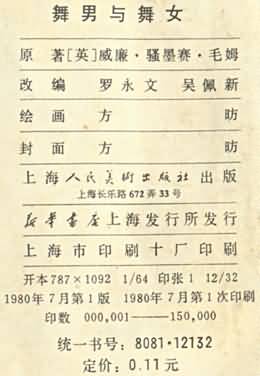 舞男与舞女
原著[英]威廉·骚墨赛·毛姆
改编 罗永文 吴佩新
绘画 方昉
封面 方昉
上海人民美术出版社出版
上海长乐路672弄33号
新华书店上海发行所发行
上海市印刷十厂印刷
开本787×1092 1/64 印张1 12/32
1980年7月第1版 1980年7月第1次印刷
印数 000,001——150,000
统一书号：8081·12132
定价：0.11元